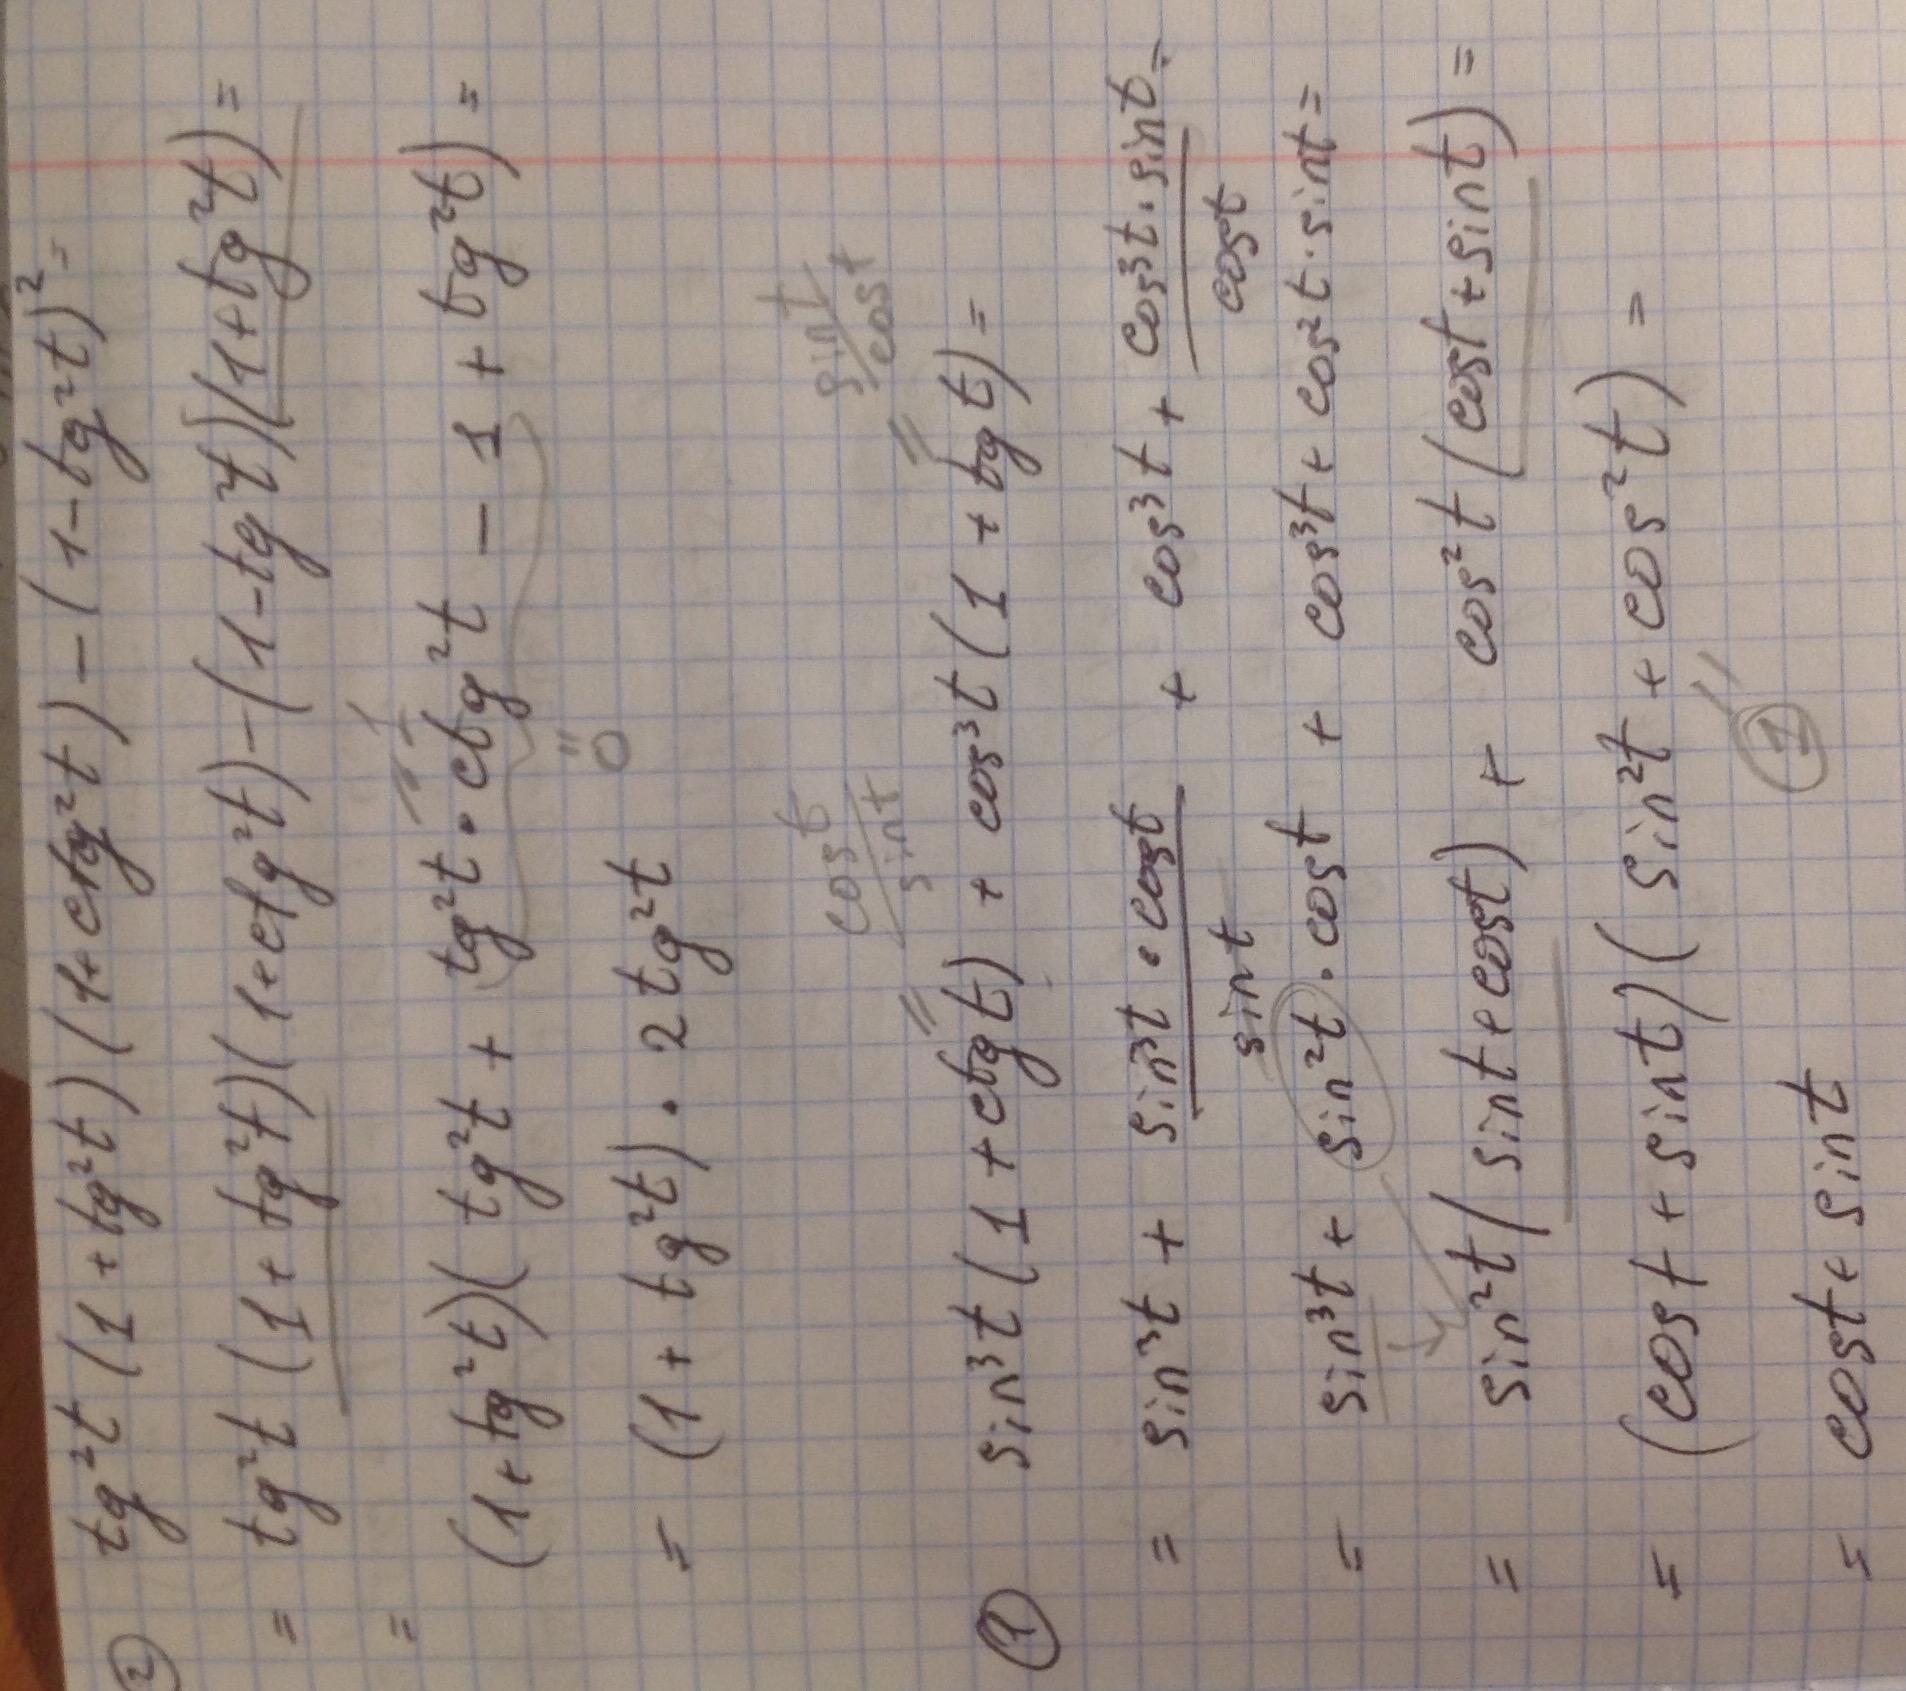 ② tg²t (1 + tg²t) (1 + ctg²t) – (1 – tg²t)² =
= tg²t (1 + tg²t)(1 + ctg²t) – (1 – tg²t)(1 + tg²t) =
= (1 + tg²t)( tg²t + tg²t · ctg²t – 1 + tg²t) =
1
"
0
= (1 + tg²t) · 2 tg²t
cost/sint sint/cost
① sin³t (1 + ctgt) + cos³t (1 + tgt) =
= sin³t + sin³t · cost/sint + cos³t + cos³t · sint/cost =
= sin³t + sin²t · cost + cos³t + cos²t · sint =
= sin²t (sint + cost) + cos²t (cost + sint) =
= (cost + sint) (sin²t + cos²t) =
"
1
= cost + sint